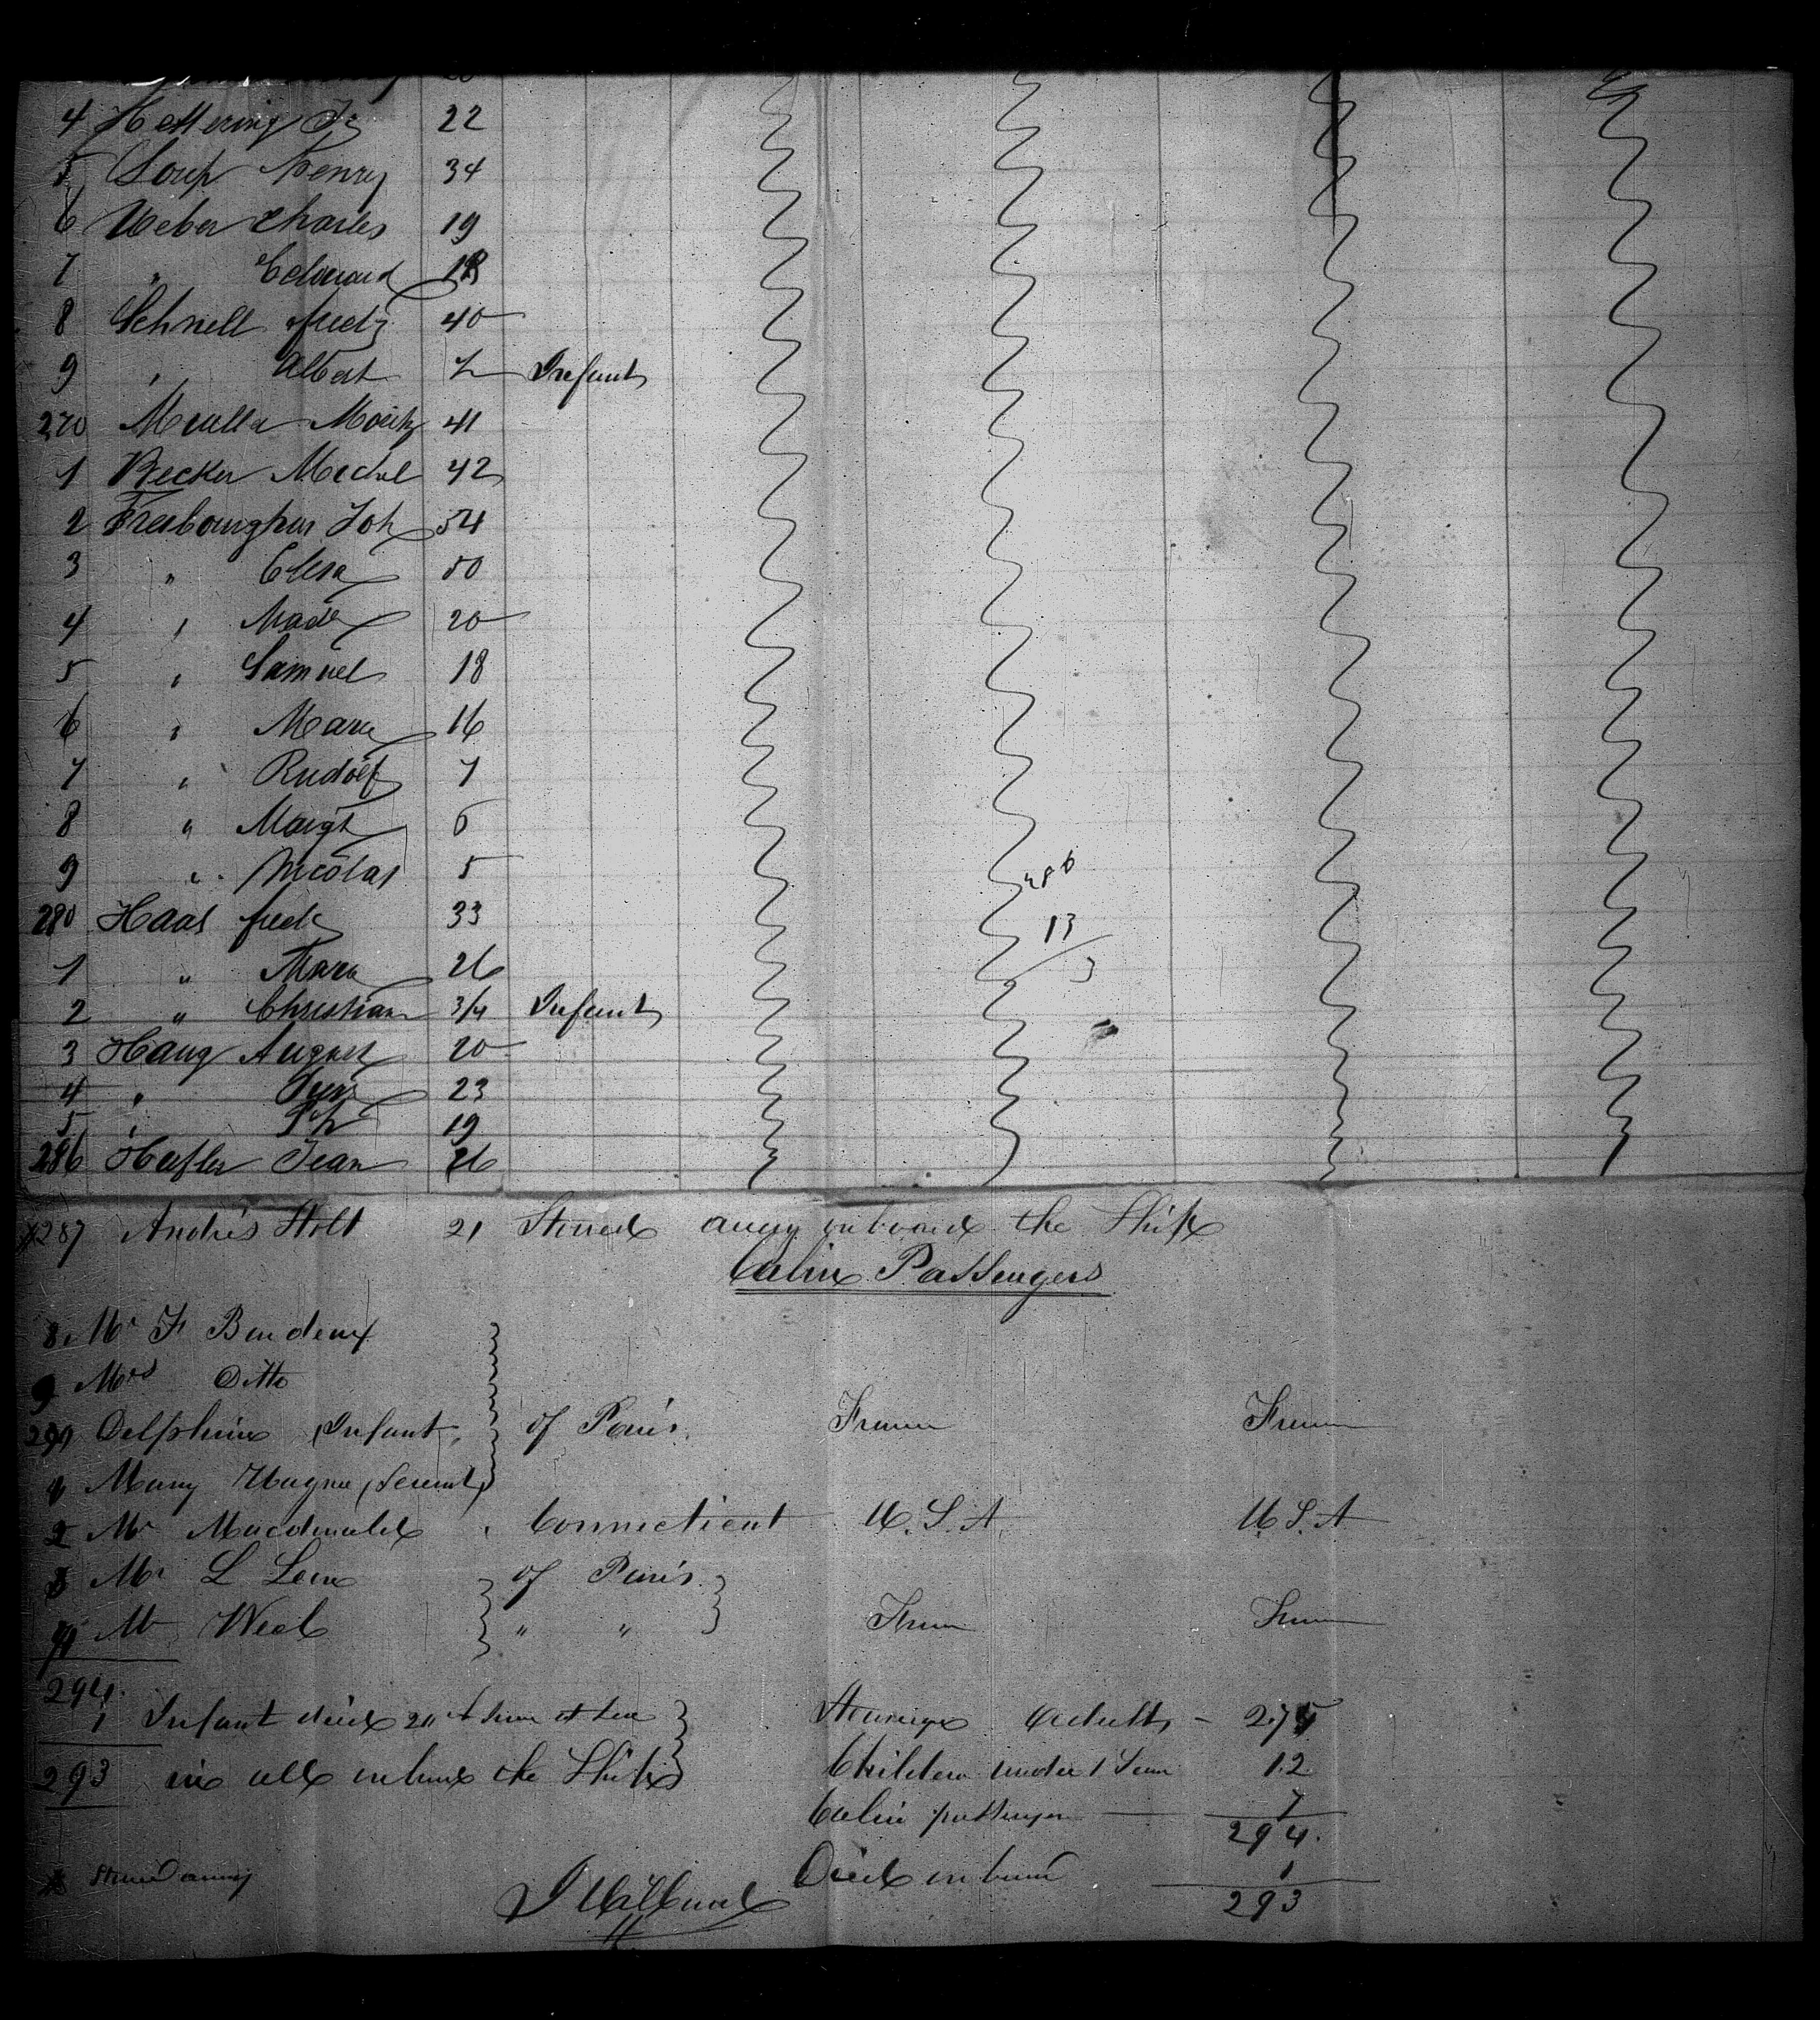 4 Hettering Fr 22
5 Loup Henry 34
6 Weber Charles 19
7 " Edouard 18
8 Schnell fredz 40
9 " Albert Infant
270 Mulla Moritz 41
1 Becker Michel 42
2 Joh 54
3 " Elisa 50
4 " Made 20
5 " Samuel 18
6 " Marie 16
7 " Rudolf 7
8 " Margt 6
9 " Nicolas 5
280 Haas fredk 33
286
13
3
1 " Maria 26
2 " Christian 3/4 Infant
3 Haug August 20
4 " 23
5 " 19
286 Hafler Jean 26
287 Andrés Stolt 21 Stowed away onboard the Ship
Cabin Passengers
8 Mr F
9 Mrs Ditto
290 Delphine Infant of Paris France France
1 Mary Wagner (Servant)
2 Mr Macdonald " Connecticut U.S.A U.S.A
3 Mr L of Paris
4 Mr Weil " " France France
294
1 Infant died at Sea Steerage Adults - 275
293 in all onboard the Ship Children under 1 Year 12
Cabin passengers 7
294
Stowed away Died on board 1
293